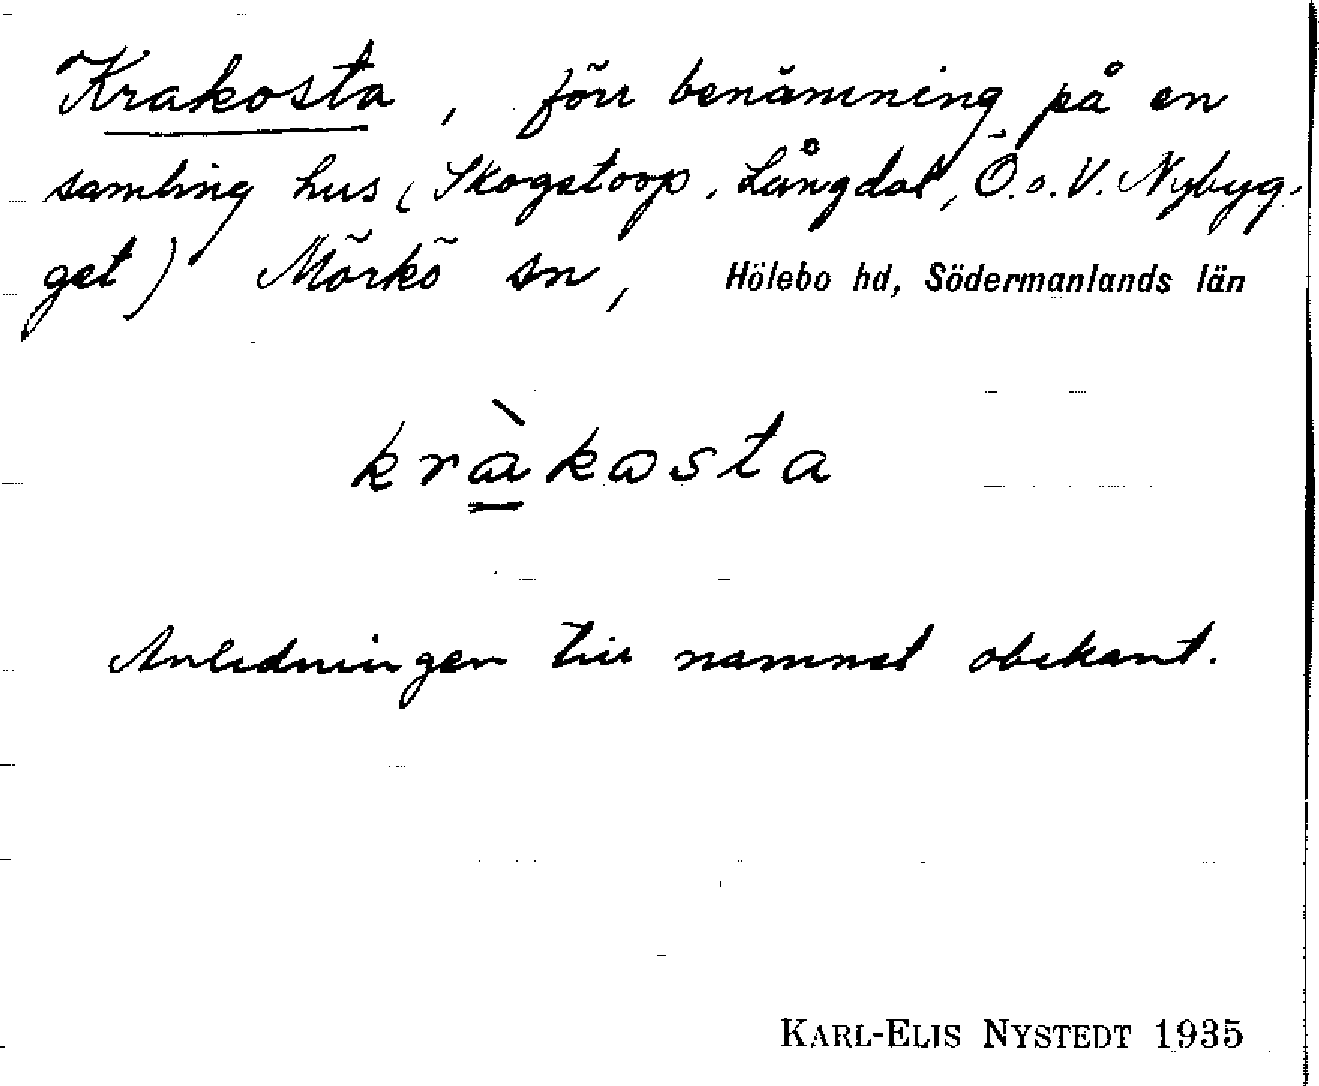 Krakosta, förr benämning på en
samling hus (Skogstorp, Långdal, Ö. o. V. Nybyg-
get) Mörkö sn, Hölebo hd, Södermanlands län
kràkosta
Anledningen till namnet obekant.
KARL-ELIS NYSTEDT 1935